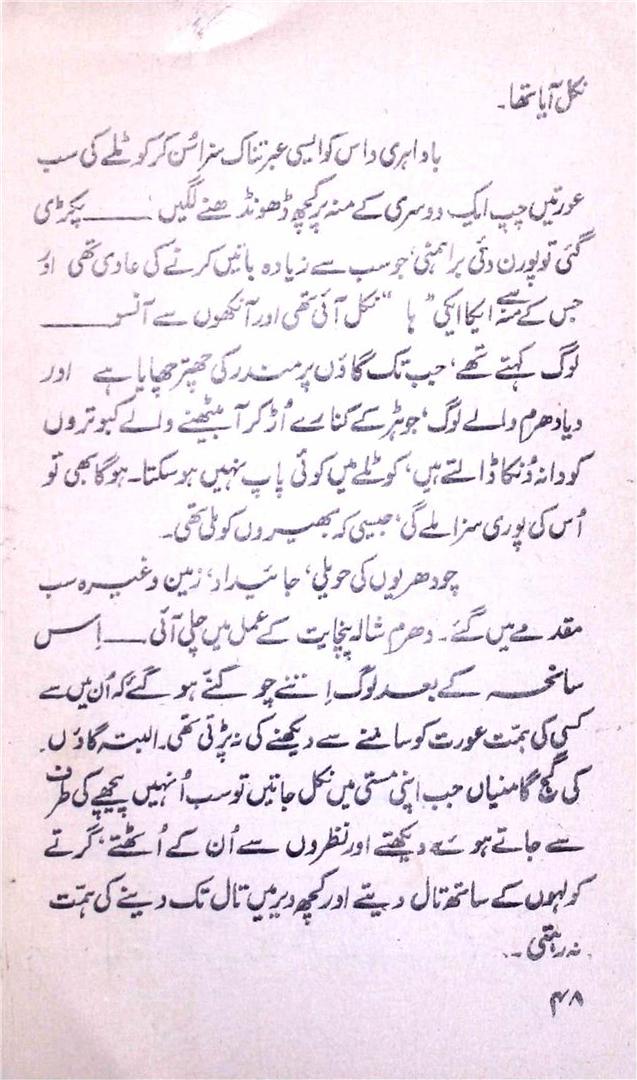 نکل آیا تھا۔
باوا ہری داس کو ایسی عبرتناک سزا سُن کر کوٹلے کی سب
عورتیں چپ ایک دوسری کے منہ پر کچھ ڈھونڈھنے لگیں ـــــــ پکڑی
گئی تو پورن دئی براہمنی، جو سب سے زیادہ باتیں کرنے کی عادی تھی اور
جس کے منہ سے ایکا ایکی ”ہا“ نکل آئی تھی اور آنکھوں سے آنسو ـــــــ
لوگ کہتے تھے، جب تک گاؤں پر مندر کی چھتر چھایا ہے اور
دیا دھرم والے لوگ، جوہڑ کے کنارے اُڑ کر آ بیٹھنے والے کبوتروں
کو دانہ دُنکا ڈالتے ہیں، کوٹلے میں کوئی پاپ نہیں ہو سکتا۔ ہو گا بھی تو
اُس کی پوری سزا ملے گی، جیسی کہ بھیروں کو ملی تھی۔
چودھریوں کی حویلی، جائیداد، زمین وغیرہ سب
مقدمے میں گئے۔ دھرم شالہ پنچایت کے عمل میں چلی آئی ـــــ اِس
سانحہ کے بعد لوگ اِتنے چوکنّے ہو گئے کہ اُن میں سے
کسی کی ہمّت عورت کو سامنے سے دیکھنے کی نہ پڑتی تھی۔ البتہ گاؤں
کی گج گامنیاں جب اپنی مستی میں نکل جاتیں تو سب اُنہیں پیچھے کی طرف
سے جاتے ہوئے دیکھتے اور نظروں سے اُن کے اُٹھتے، گرتے
کولہوں کے ساتھ تال دیتے اور کچھ دیر میں تال تک دینے کی ہمّت
نہ رہتی۔
۴۸